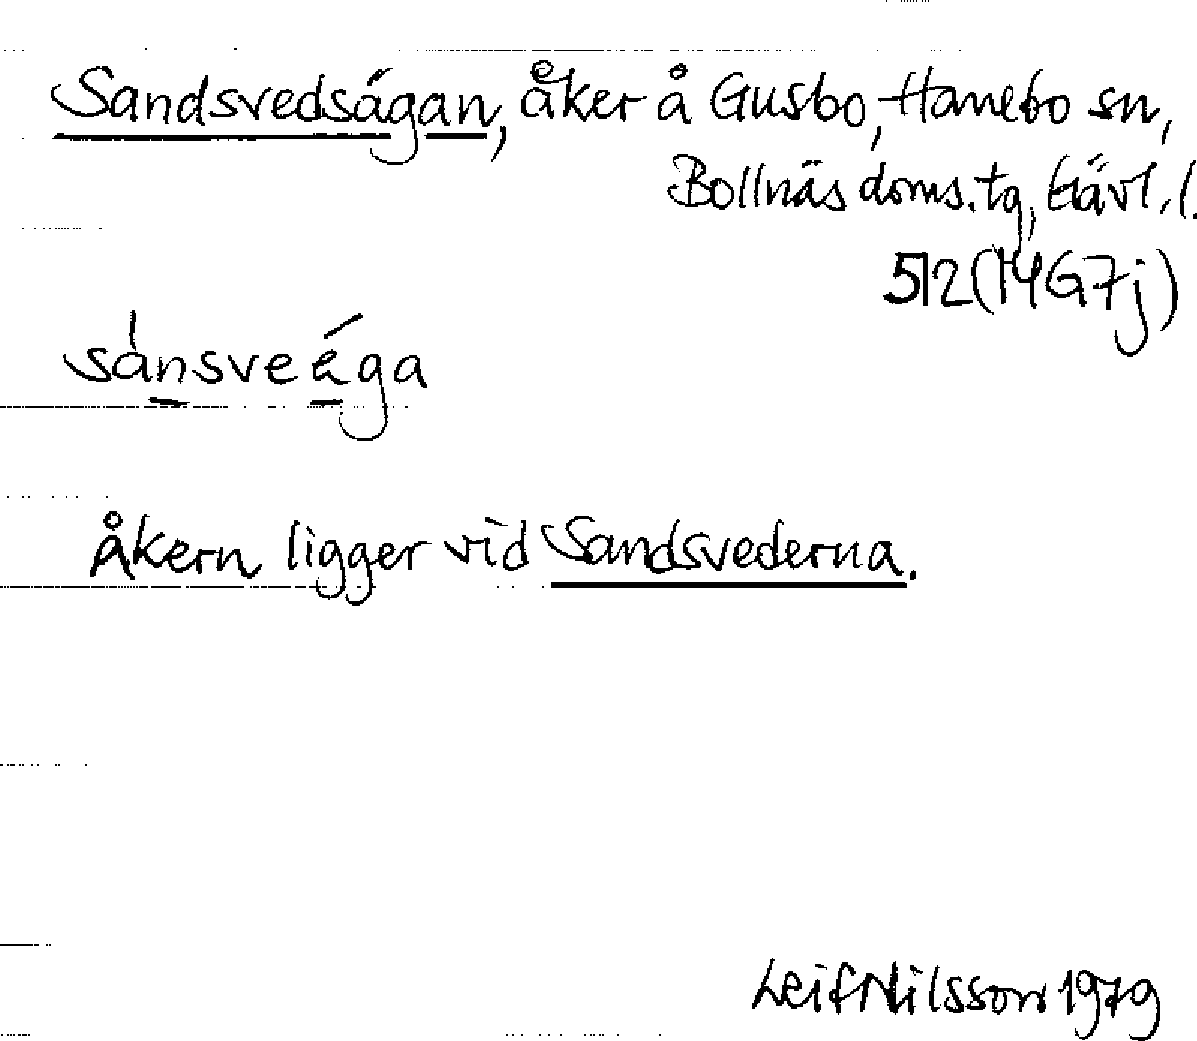 Sandsvedsågan, åker å Gusbo, Hanebo sn,
Bollnäs doms. tg, Gävl. l.
512 (14G7j)
Åkern ligger vid Sandsvederna.
Leif Nilsson 1979